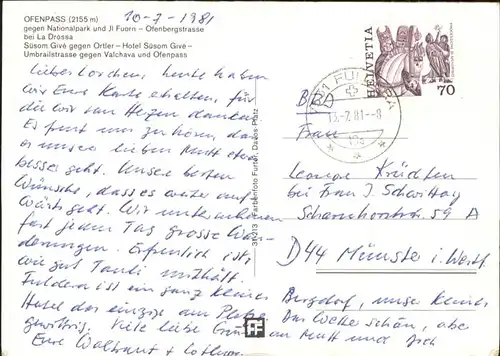 OFENPASS (2155 m)
gegen Nationalpark und Jl Fuorn - Ofenbergstrasse
bei La Drossa
Süsom Givé gegen Ortler - Hotel Süsom Givé -
Umbrailstrasse gegen Valchava und Ofenpass
10-7-1981
Liebes Lorchen, heute haben
wir Eure Karte erhalten, für
die wir von Herzen danken.
Es freut uns zu hören, dass
es unser lieben Mutt etwas
besser geht. Unsere besten
Wünsche, dass es weiter auf-
wärts geht. Wir unternehmen
fast jeden Tag grosse Wan-
derungen. Erfreulich ist,
wie gut Tanti mithält.
Fuldera ist ein ganz kleines
Hotel das einzige am Platze
Viele liebe Grüsse an Mutt und Dich
Eure Waltraut + Lothar
31 013 Farbenfoto Furter, Davos-Platz
FF
HELVETIA
70
13.-7.81.-8
BRD
Frau
Leonore
bei Frau J.
Scharnhorststr. 59 A
D44 Münster i. Westf.
Bergdorf, unser kleines
Das Wetter schön, aber